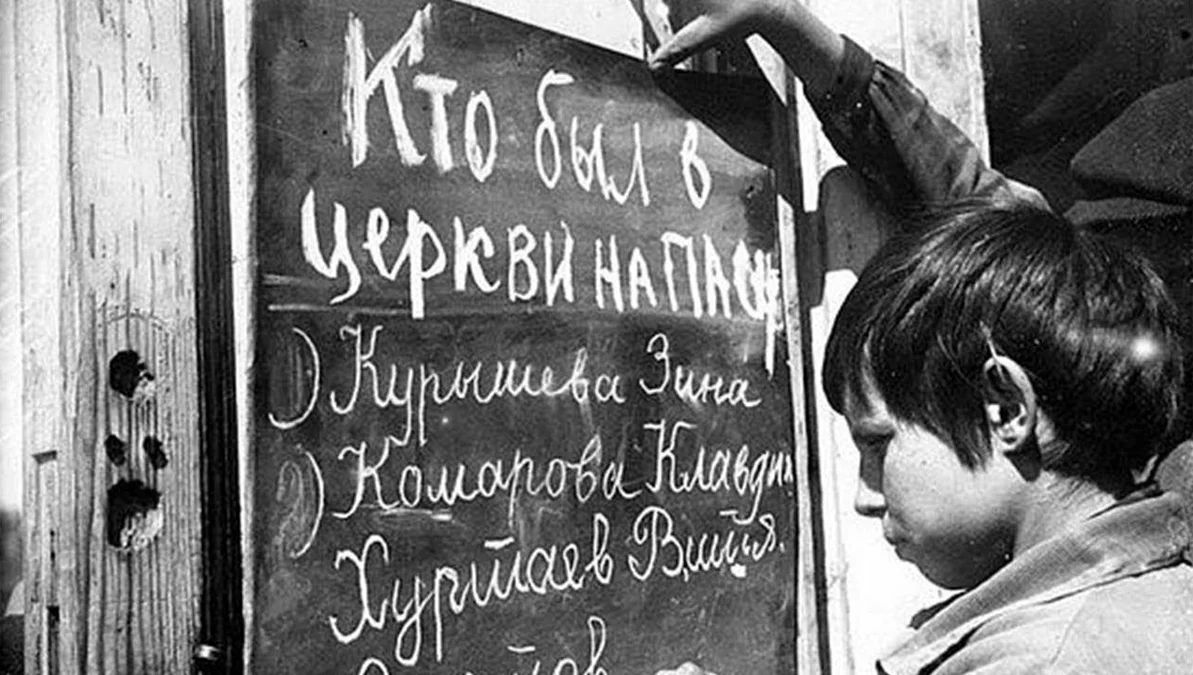 Кто был в
церкви на пасх
1) Курышева Зина
2) Комарова Клавдия
Хуртаев Витя.